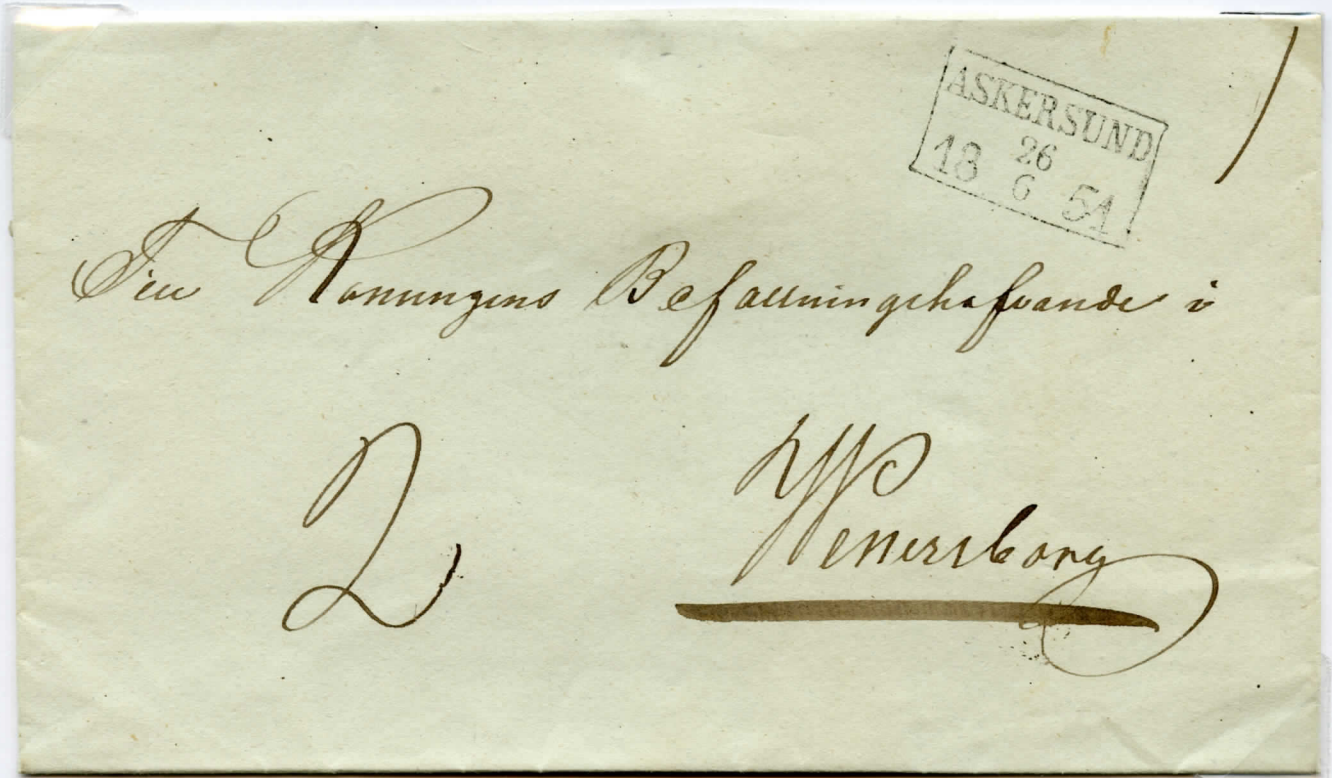 ASKERSUND
26
18 6 51
Till Konungens Befallningshafvande i
2 Wenersborg